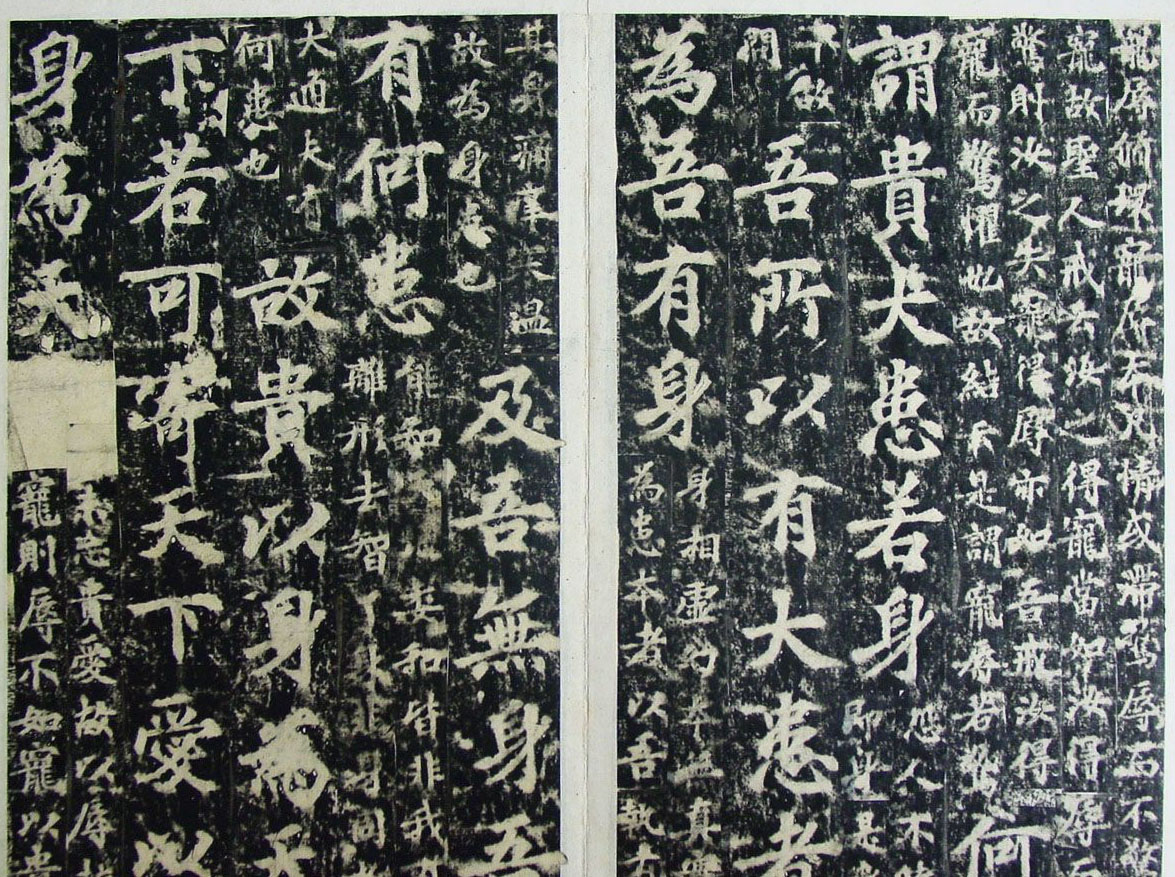 寵辱循環寵為辱本凡情或滯驚辱而不驚
寵故聖人戒云汝之得寵當如汝得辱而
驚則汝之失寵得辱亦如吾戒汝得
寵而驚懼也故結云是謂寵辱若驚
何
謂貴大患若身
恐人不
即
下故
問
吾所以有大患者
為吾有身
身相虛幻本無真
為患本者以吾執有
其身痛
故為身患也
及吾無身吾
有何患
能知
委和皆非我
離形去智了身非身同
大通夫有
何患也
故貴以身為天
下若可寄天下愛以
身為天
未忘貴愛故以辱
寵則辱不如寵以貴